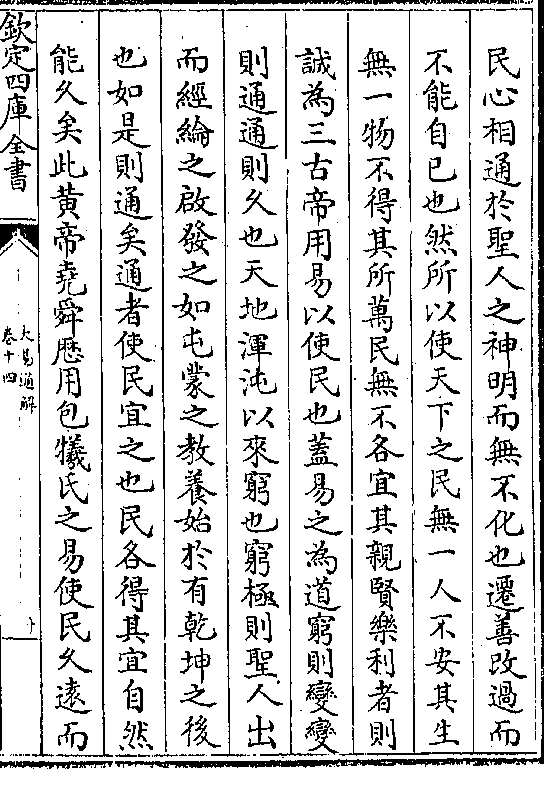 民心相通於聖人之神明而無不化也遷善改過而
不能自已也然所以使天下之民無一人不安其生
無一物不得其所萬民無不各宜其親賢樂利者則
誠為三古帝用易以使民也蓋易之為道窮則變變
則通通則久也天地渾沌以來窮也窮極則聖人出
而經綸之啟發之如屯蒙之教養始於有乾坤之後
也如是則通矣通者使民宜之也民各得其宜自然
能久矣此黄帝堯舜歷用包犧氏之易使民久遠而
欽定四庫全書
大易通解
卷十四